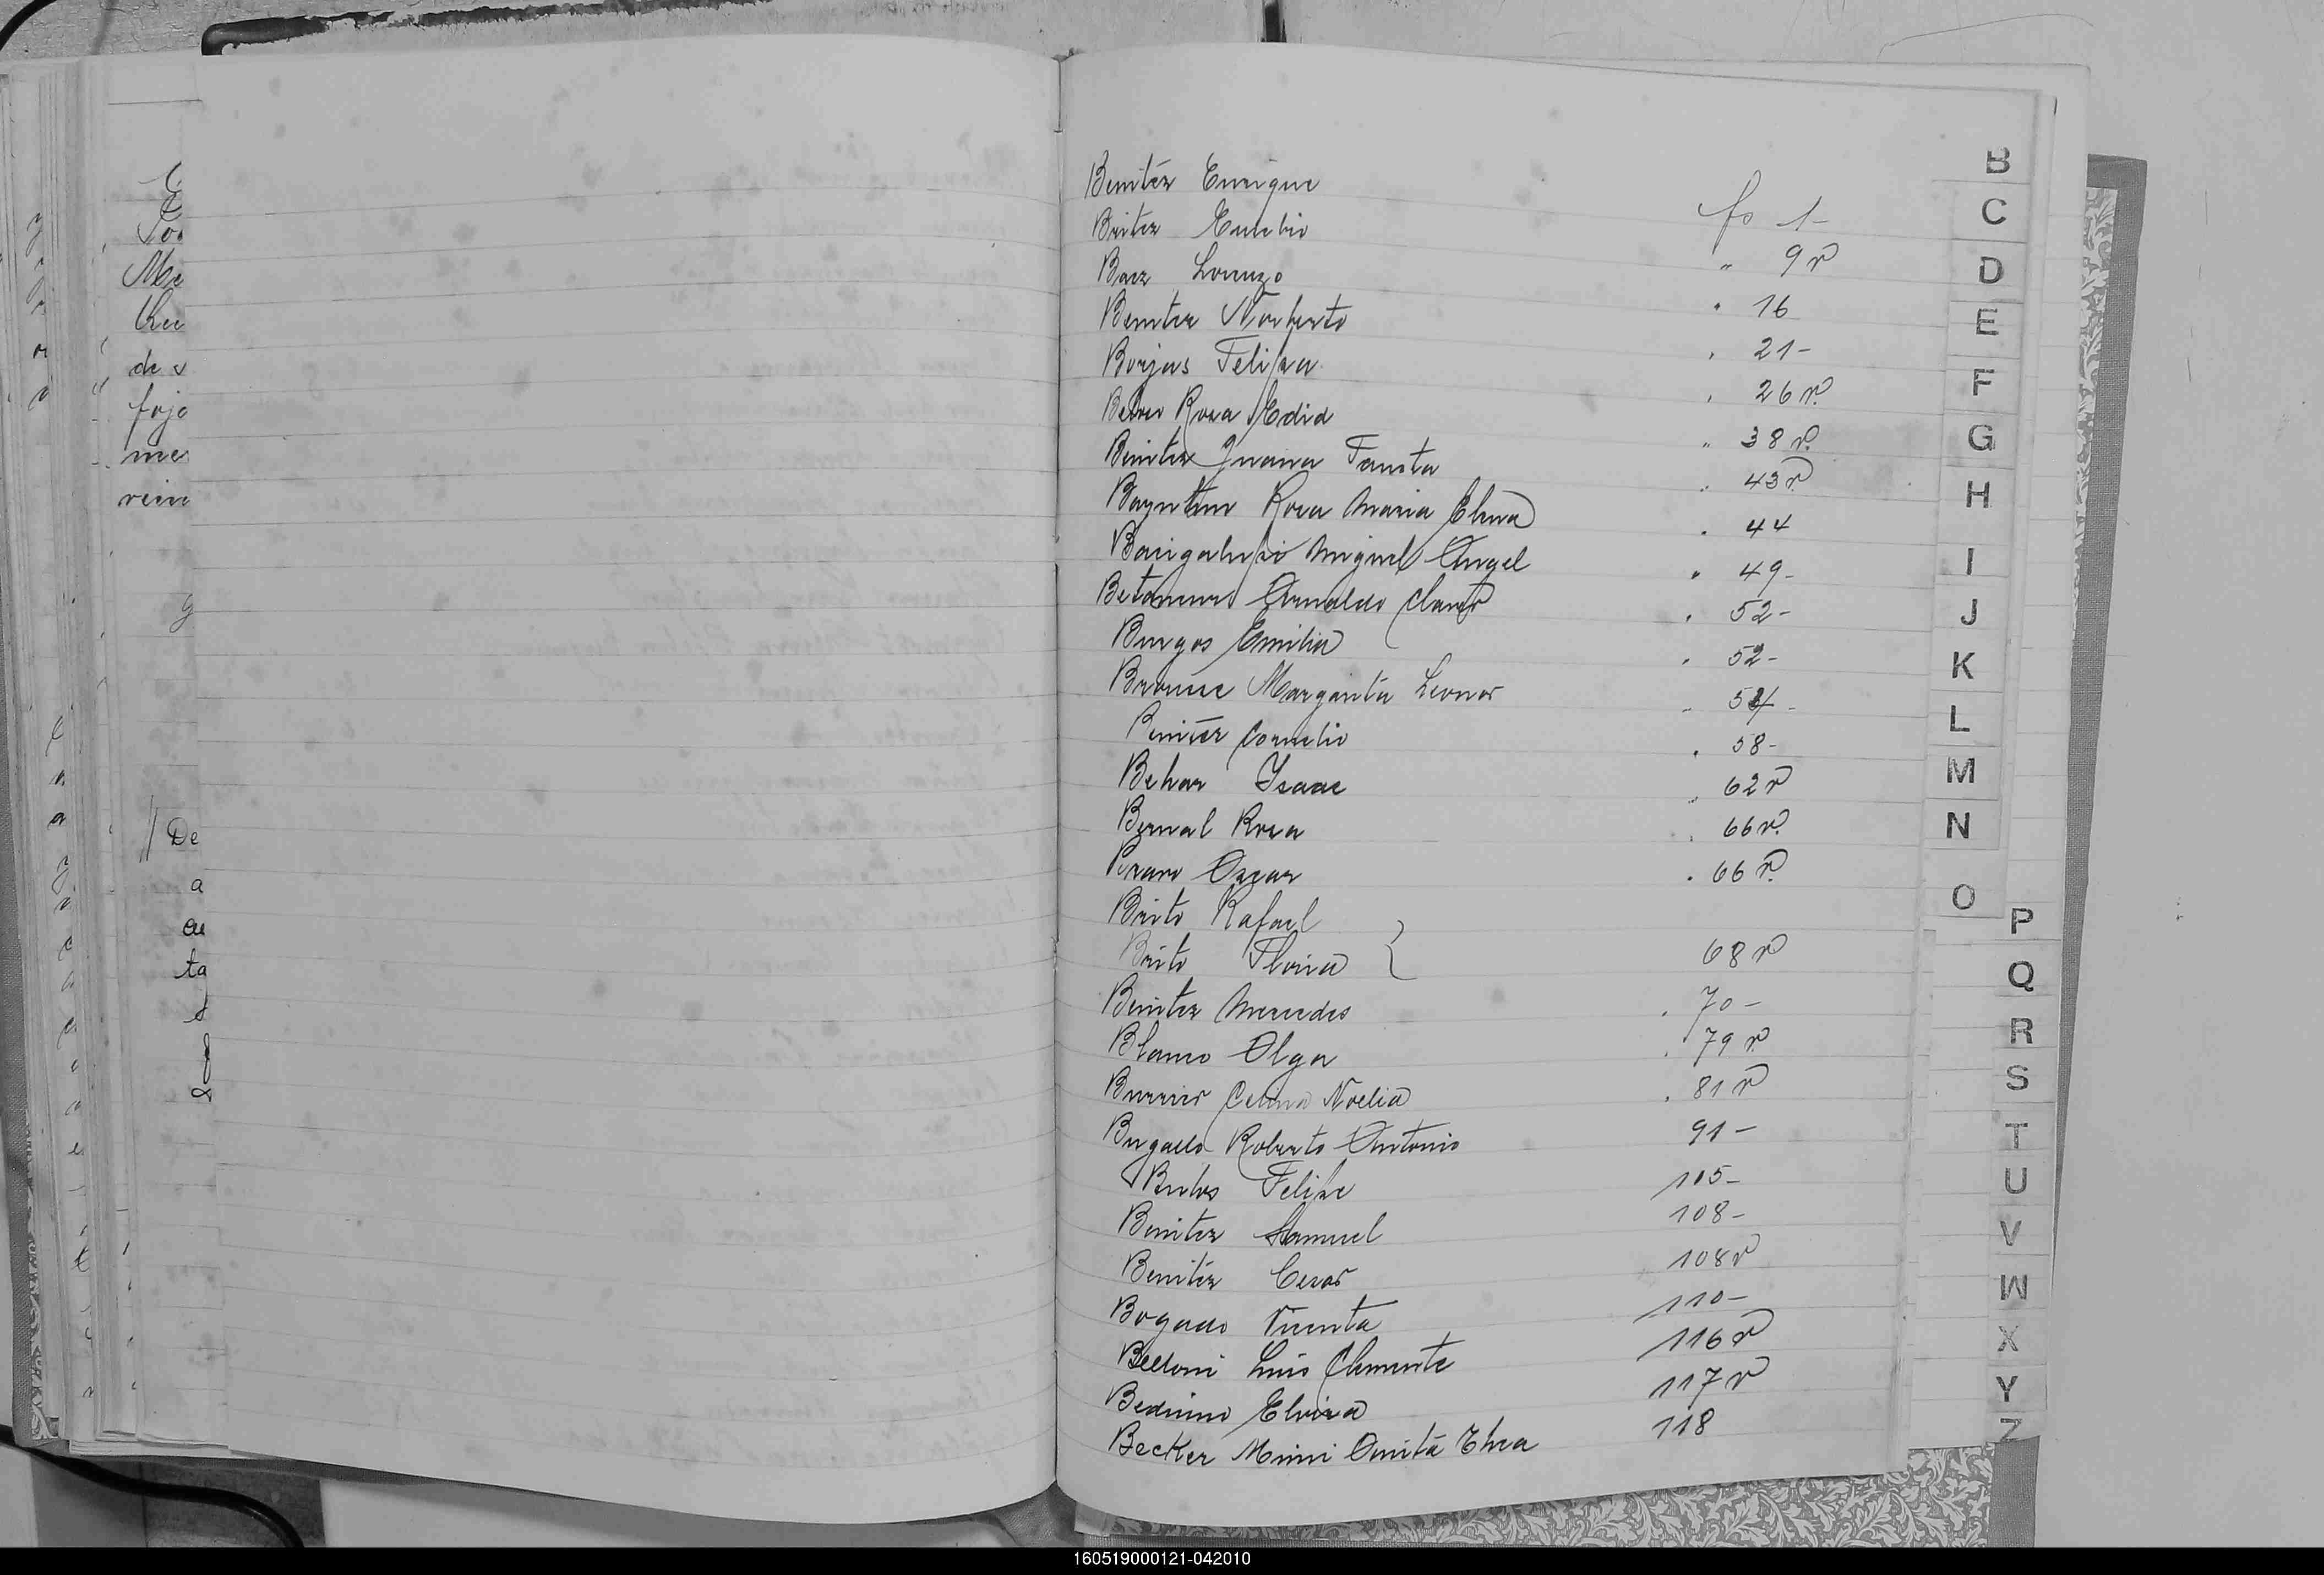 Benitez Enrique fo 1-
Britez Eusebio " 9 v
Baez Lorenzo " 16
Benitez Norberto " 21-
Borjas Felipa " 26 v.
Rosa Edid " 38 v.
Benitez Juana Fausta " 43 v
Rosa Maria Elena " 44
Bacigalupi Miguel Angel " 49-
Arnaldo " 52-
Burgos Emilia " 52-
Margarita Leonor " 54-
Benitez Cornelio " 58-
Behar Isaac " 62 v
Bernal Rosa " 66 v.
Oscar " 66 v.
Brito Rafael
Brito 68 v
Benitez Mercedes " 70-
Blanco Olga " 79 v
Celina Noelia " 81 v
Roberto Antonio 91-
Felipe 105-
Benitez Samuel 108-
Benitez Cesar 108 v
Bogado Vicenta 110-
Belloni Luis Clemente 116 v
Elvira 117 v
Becker Mimi Anita 118
B
C
D
E
F
G
H
I
J
K
L
M
N
O
P
Q
R
S
T
U
V
W
X
Y
Z
Me
de v
fojo
me
De
a
ta
160519000121-042010